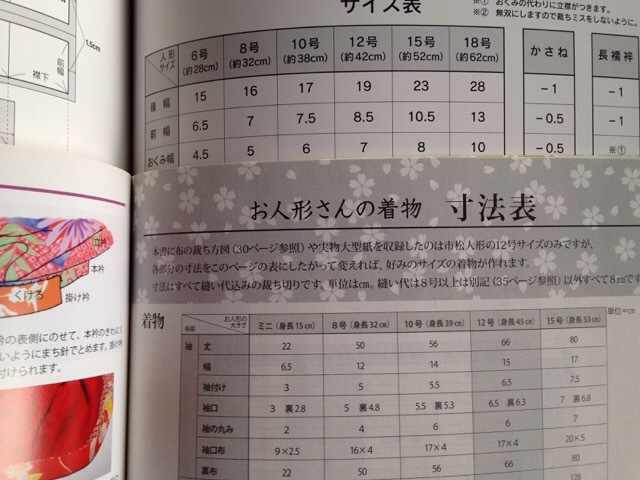 サイズ表
※① おくみの代わりに立襟がつきます。
※② 無双にしますので裁ちミスをしないように。
1.5cm
前幅
襟下
人形サイズ 6号(約28cm) 8号(約32cm) 10号(約38cm) 12号(約42cm) 15号(約52cm) 18号(約62cm) かさね 長襦袢
後幅 15 16 17 19 23 28 −1 −1
前幅 6.5 7 7.5 8.5 10.5 13 −0.5 −1
おくみ幅 4.5 5 6 7 8 10 −0.5 ※①
お人形さんの着物 寸法表
本書に布の裁ち方図(30ページ参照)や実物大型紙を収録したのは市松人形の12号サイズのみですが、
各部分の寸法をこのページの表にしたがって変えれば、好みのサイズの着物が作れます。
寸法はすべて縫い代込みの裁ち切りです。単位は㎝。縫い代は8号以上は別記(35ページ参照)以外すべて8㎜です
立衿
本衿
くける
掛け衿
衿の表側にのせて、本衿のきわにく
いようにまち針でとめます。掛け衿
付けられます。
着物
単位=cm
各部 お人形の大きさ ミニ(身長15cm) 8号(身長32cm) 10号(身長39cm) 12号(身長45cm) 15号(身長53cm)
袖 丈 22 50 56 66 80
幅 6.5 12 14 15 17
袖付け 3 5 5.5 6.5 7.5
袖口 3 裏2.8 5 裏4.8 5.5 裏5.3 6.5 裏6.3 7 裏6.8
袖の丸み 2 4 6 6 7
袖口布 9×2.5 16×4 17×4 17×4 20×5
裏布 22 50 56 66 80
128